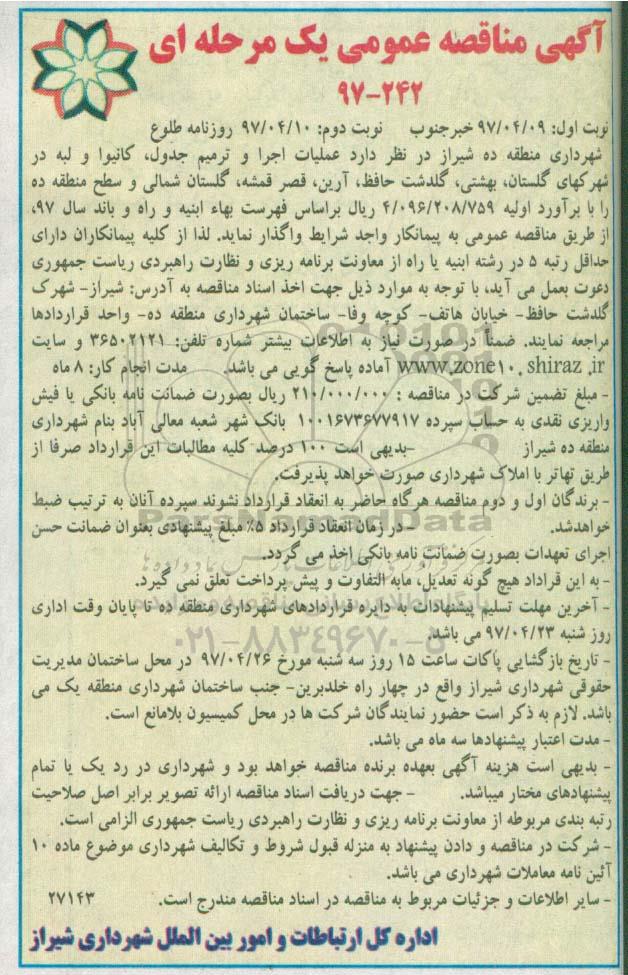 آگهی مناقصه عمومی یک مرحله ای
۹۷-۲۴۲
نوبت اول: ۹۷/۰۴/۰۹ خبرجنوب نوبت دوم: ۹۷/۰۴/۱۰ روزنامه طلوع
شهرداری منطقه ده شیراز در نظر دارد عملیات اجرا و ترمیم جدول، کانیوا و لبه در
شهرکهای گلستان، بهشتی، گلدشت حافظ، آرین، قصر قمشه، گلستان شمالی و سطح منطقه ده
را با برآورد اولیه ۴/۰۹۶/۲۰۸/۷۵۹ ریال براساس فهرست بهاء ابنیه و راه و باند سال ۹۷،
از طریق مناقصه عمومی به پیمانکار واجد شرایط واگذار نماید. لذا از کلیه پیمانکاران دارای
حداقل رتبه ۵ در رشته ابنیه یا راه از معاونت برنامه ریزی و نظارت راهبردی ریاست جمهوری
دعوت بعمل می آید، با توجه به موارد ذیل جهت اخذ اسناد مناقصه به آدرس: شیراز- شهرک
گلدشت حافظ- خیابان هاتف- کوچه وفا- ساختمان شهرداری منطقه ده- واحد قراردادها
مراجعه نمایند. ضمناً در صورت نیاز به اطلاعات بیشتر شماره تلفن: ۳۶۵۰۲۱۲۱ و سایت
www.zone۱۰.shiraz.ir آماده پاسخ گویی می باشد. مدت انجام کار: ۸ ماه
- مبلغ تضمین شرکت در مناقصه : ۲۱۰/۰۰۰/۰۰۰ ریال بصورت ضمانت نامه بانکی یا فیش
واریزی نقدی به حساب سپرده ۱۰۰۱۶۷۳۶۷۷۹۱۷ بانک شهر شعبه معالی آباد بنام شهرداری
منطقه ده شیراز -بدیهی است ۱۰۰ درصد کلیه مطالبات این قرارداد صرفا از
طریق تهاتر با املاک شهرداری صورت خواهد پذیرفت.
- برندگان اول و دوم مناقصه هرگاه حاضر به انعقاد قرارداد نشوند سپرده آنان به ترتیب ضبط
خواهدشد. - در زمان انعقاد قرارداد ۵٪ مبلغ پیشنهادی بعنوان ضمانت حسن
اجرای تعهدات بصورت ضمانت نامه بانکی اخذ می گردد.
- به این قراداد هیچ گونه تعدیل، مابه التفاوت و پیش پرداخت تعلق نمی گیرد.
- آخرین مهلت تسلیم پیشنهادات به دایره قراردادهای شهرداری منطقه ده تا پایان وقت اداری
روز شنبه ۹۷/۰۴/۲۳ می باشد.
- تاریخ بازگشایی پاکات ساعت ۱۵ روز سه شنبه مورخ ۹۷/۰۴/۲۶ در محل ساختمان مدیریت
حقوقی شهرداری شیراز واقع در چهار راه خلدبرین- جنب ساختمان شهرداری منطقه یک می
باشد. لازم به ذکر است حضور نمایندگان شرکت ها در محل کمیسیون بلامانع است.
- مدت اعتبار پیشنهادها سه ماه می باشد.
- بدیهی است هزینه آگهی بعهده برنده مناقصه خواهد بود و شهرداری در رد یک یا تمام
پیشنهادهای مختار میباشد. - جهت دریافت اسناد مناقصه ارائه تصویر برابر اصل صلاحیت
رتبه بندی مربوطه از معاونت برنامه ریزی و نظارت راهبردی ریاست جمهوری الزامی است.
- شرکت در مناقصه و دادن پیشنهاد به منزله قبول شروط و تکالیف شهرداری موضوع ماده ۱۰
آئین نامه معاملات شهرداری می باشد.
- سایر اطلاعات و جزئیات مربوط به مناقصه در اسناد مناقصه مندرج است. ۲۷۱۴۳
اداره کل ارتباطات و امور بین الملل شهرداری شیراز
ParsNamadData
۰۲۱-۸۸۳۴۹۶۷۰-۵